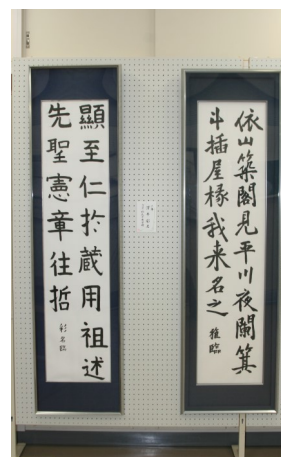 依山築閣見平川夜闌箕
斗插屋椽我来名之 雅臨
顯至仁於蔵用祖述
先聖憲章往哲